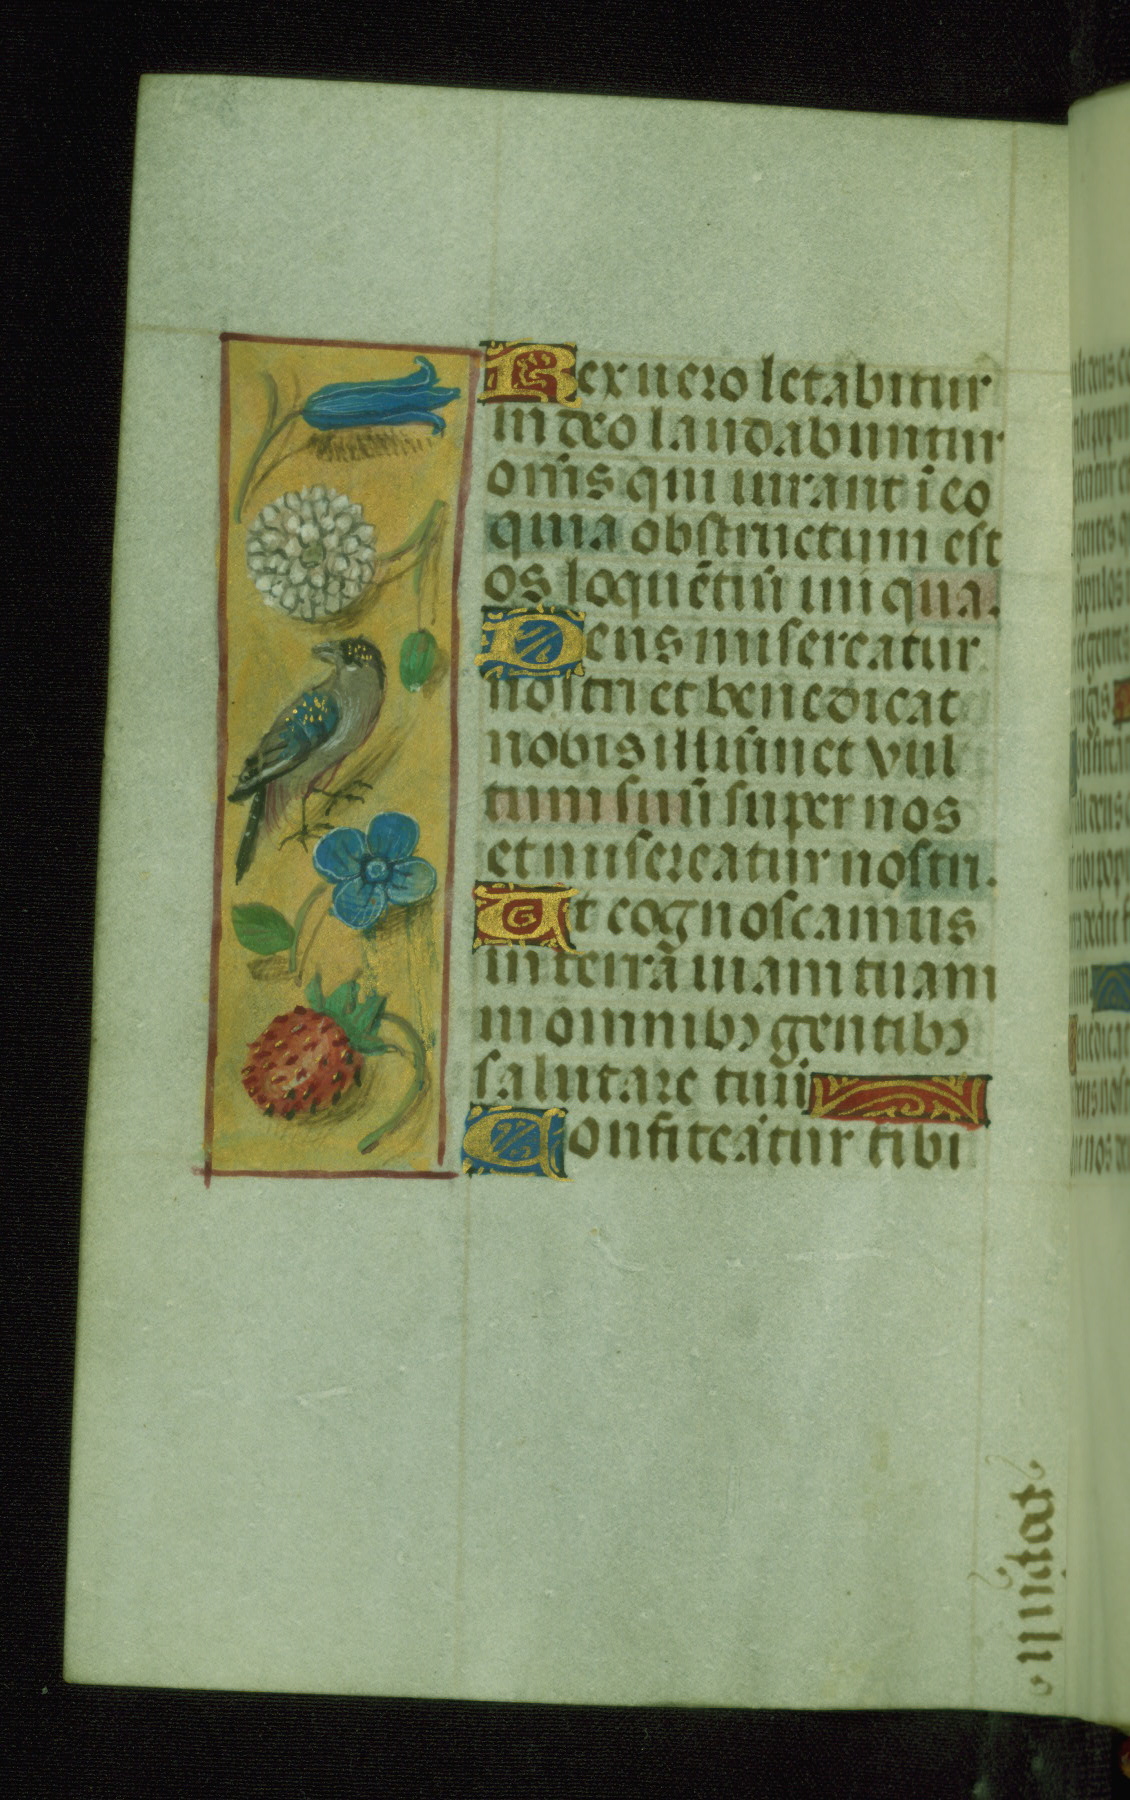 Rex uero letabitur
in deo laudabuntur
om̄s qui iurant ī eo
quia obstructum est
os loquētiū iniqua.
Deus misereatur
nostri et benedicat
nobis illūinet vul
tum suū super nos
et misereatur nostri.
Ut cognoscamus
in terrā uiam tuam
in omnibꝫ gentibꝫ
salutare tuū
Confiteātur tibi